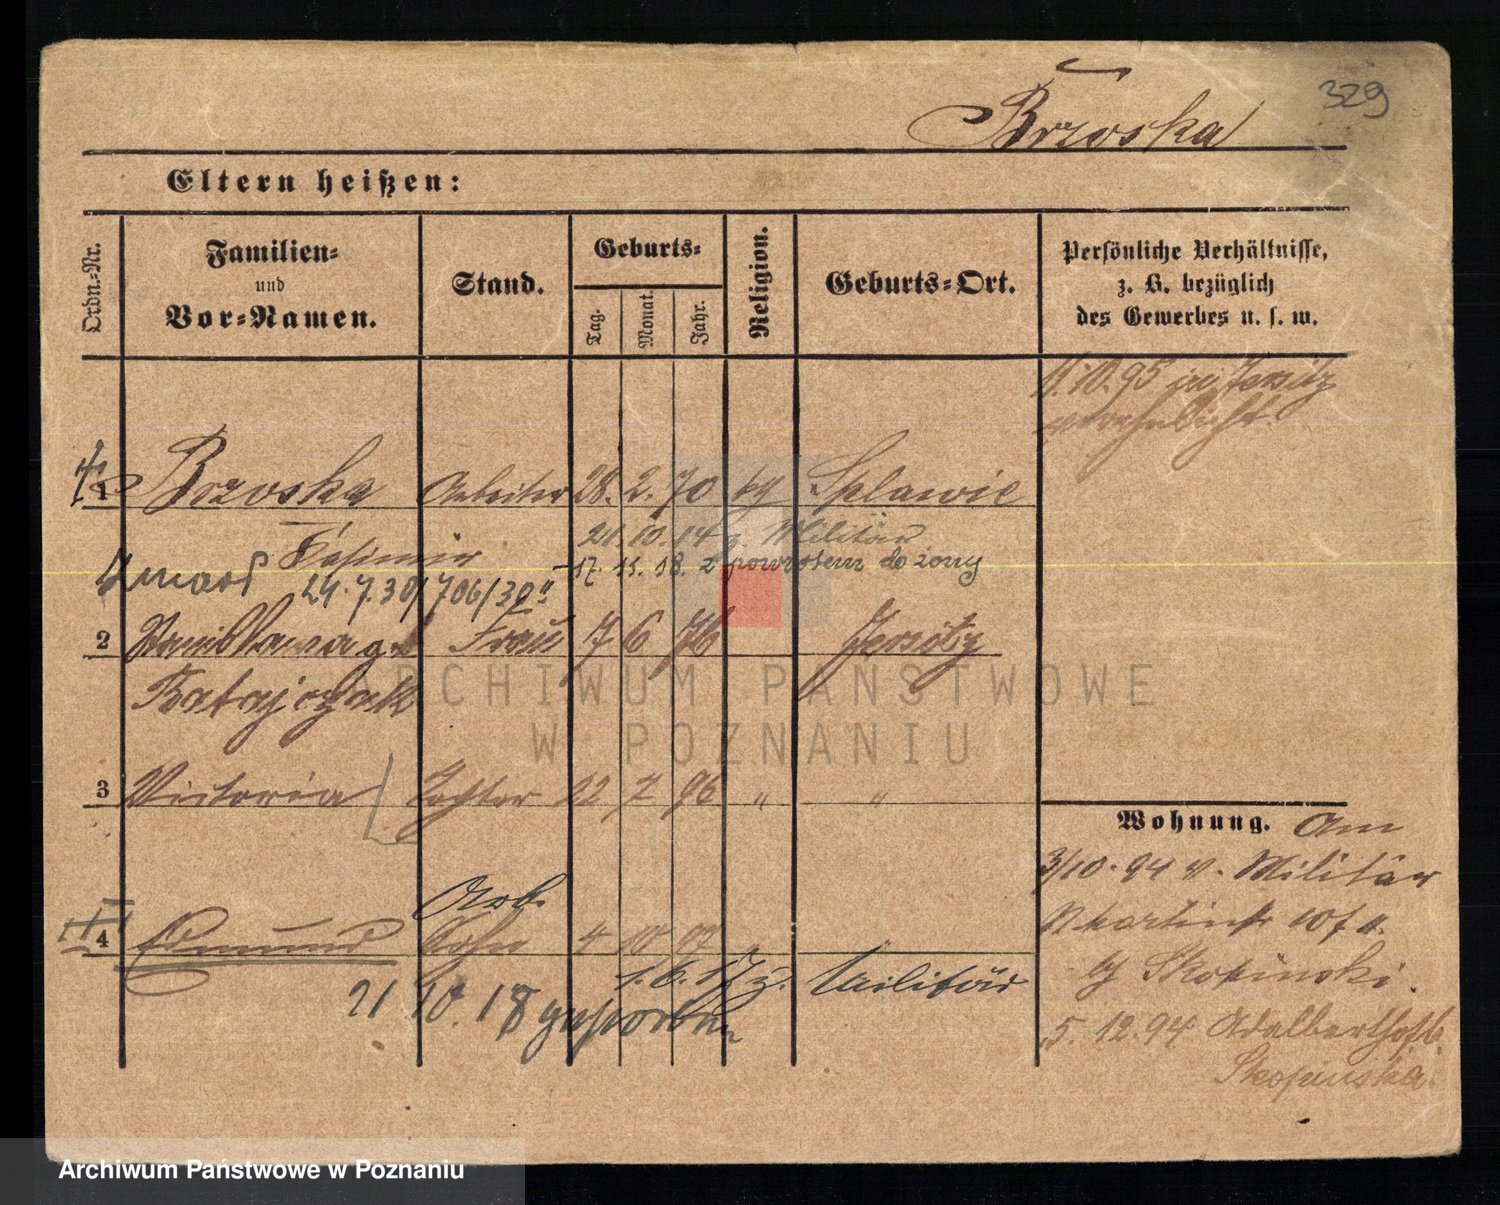 329
Brzoska
Eltern heißen:
Ordn.-Nr.
Familien-
und
Vor-Namen.
Stand.
Geburts-
Tag.
Monat.
Jahr.
Religion.
Geburts-Ort.
Persönliche Verhältnisse,
z. B. bezüglich
des Gewerbes u. s. w.
11.10.95 in Jersitz
verehelicht.
1 Brzoska Arbeiter 28. 2. 70 Splawie
Kasimir 21.10.14 z. Militär
17. 11. 18. z powrotem do żony
zmarł 24.7.30/706/30
2 Stanislawa g. Frau 7 6 76 Jersitz
Ratajczak
3 Victoria Tochter 22 7 96 " "
Arb.
4 Edmund Sohn 4 10 97
1.6.17 z. Militär
21 10. 18 gestorben
Wohnung. Am
3/10.94 v. Militär
St Martinstr
Skopinski.
5.12.94 Adalbertstr
Skopinska.
ARCHIWUM PAŃSTWOWE
W POZNANIU
Archiwum Państwowe w Poznaniu